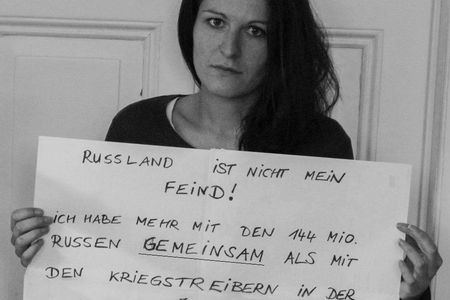 RUSSLAND IST NICHT MEIN
FEIND!
ICH HABE MEHR MIT DEN 144 MIO.
RUSSEN GEMEINSAM ALS MIT
DEN KRIEGSTREIBERN IN DER